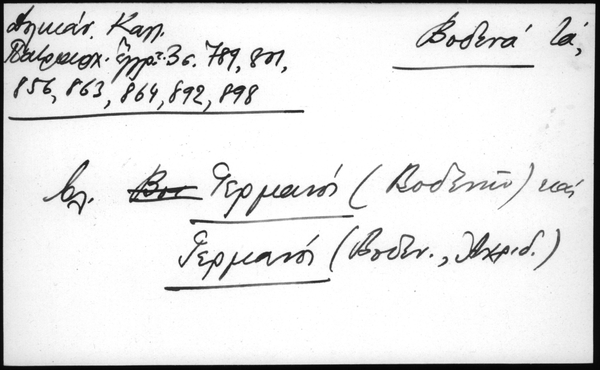 Δελικάν. Καλ.
Πατριαρχ. Ἔγγρ. 3 σ. 789, 801,
856, 863, 864, 892, 898
Βοδενά τά,
βλ. Γερμανός (Βοδενῶν) καί
Γερμανός (Βοδεν., Ἀχριδ.)